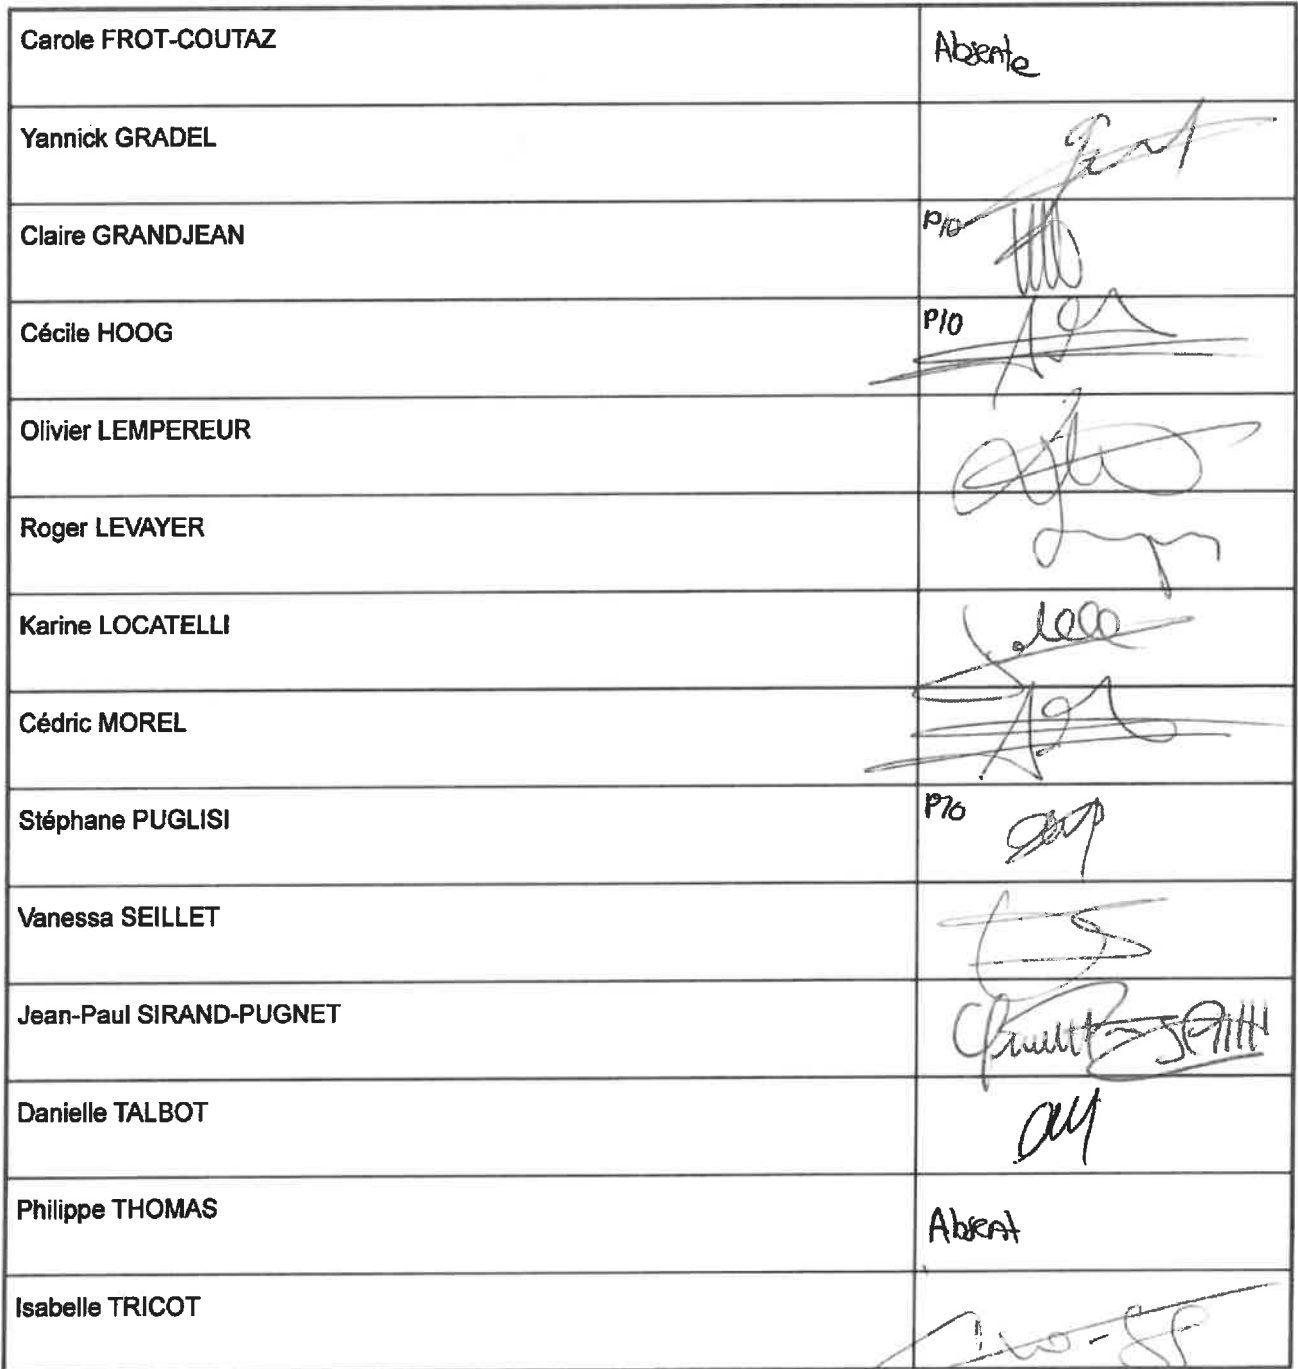 Carole FROT-COUTAZ
Absente
Yannick GRADEL
Claire GRANDJEAN
P/O
Cécile HOOG
P/O
Olivier LEMPEREUR
Roger LEVAYER
Karine LOCATELLI
Cédric MOREL
Stéphane PUGLISI
P/O
Vanessa SEILLET
Jean-Paul SIRAND-PUGNET
Danielle TALBOT
Philippe THOMAS
Absent
Isabelle TRICOT